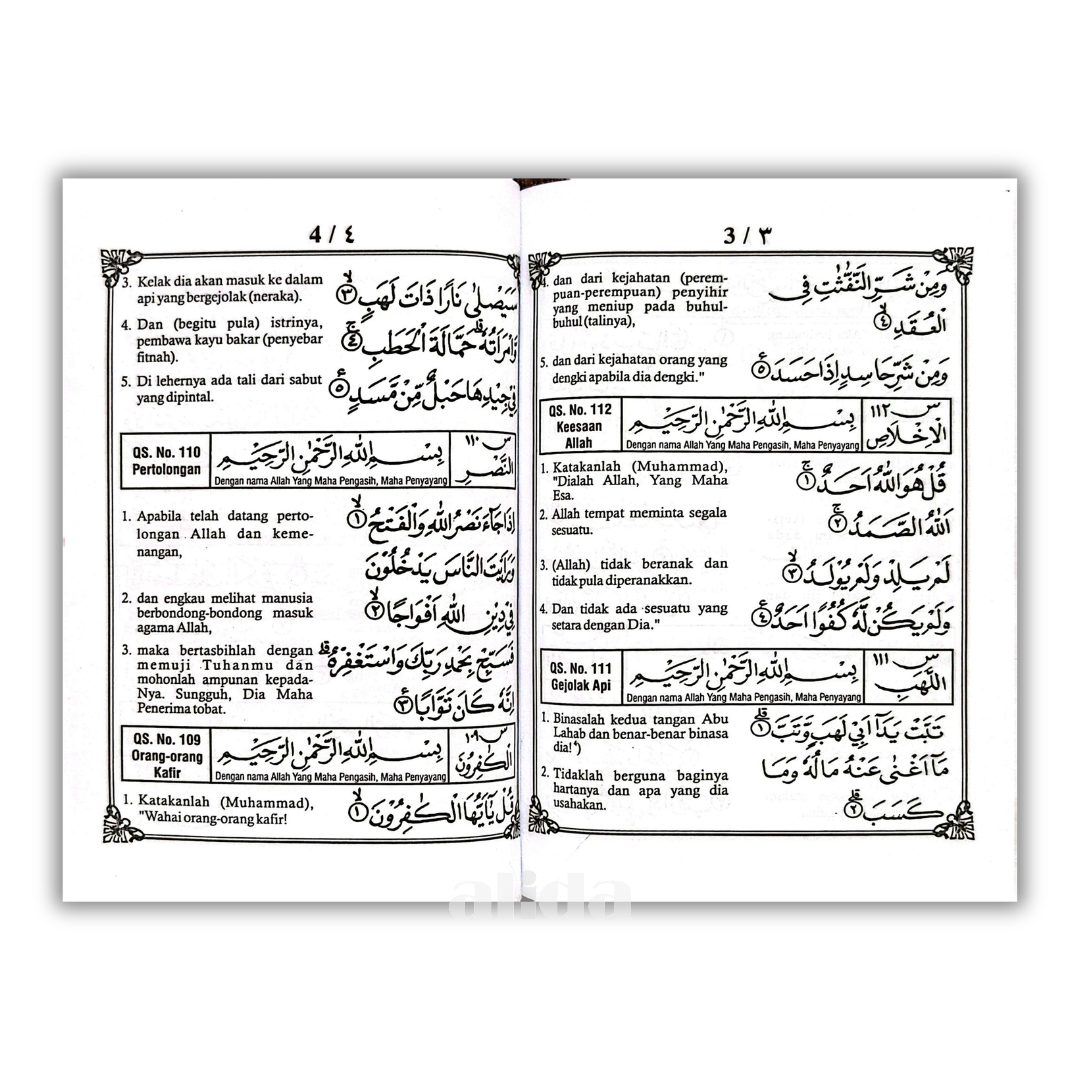 3 / ٣
وَمِنْ شَرِّ النَّفّٰثٰتِ فِى
الْعُقَدِ ۙ ٤
4. dan dari kejahatan (perem-
puan-perempuan) penyihir
yang meniup pada buhul-
buhul (talinya),
وَمِنْ شَرِّ حَاسِدٍ اِذَا حَسَدَ ࣖ ٥
5. dan dari kejahatan orang yang
dengki apabila dia dengki."
QS. No. 112
Keesaan
Allah
بِسْمِ اللّٰهِ الرَّحْمٰنِ الرَّحِيْمِ
Dengan nama Allah Yang Maha Pengasih, Maha Penyayang
س ١١٢
الْاِخْلَاصِ
قُلْ هُوَ اللّٰهُ اَحَدٌ ۚ ١
1. Katakanlah (Muhammad),
"Dialah Allah, Yang Maha
Esa.
اَللّٰهُ الصَّمَدُ ۚ ٢
2. Allah tempat meminta segala
sesuatu.
لَمْ يَلِدْ وَلَمْ يُوْلَدْ ۙ ٣
3. (Allah) tidak beranak dan
tidak pula diperanakkan.
وَلَمْ يَكُنْ لَّهٗ كُفُوًا اَحَدٌ ࣖ ٤
4. Dan tidak ada sesuatu yang
setara dengan Dia."
QS. No. 111
Gejolak Api
بِسْمِ اللّٰهِ الرَّحْمٰنِ الرَّحِيْمِ
Dengan nama Allah Yang Maha Pengasih, Maha Penyayang
س ١١١
اللَّهَبِ
تَبَّتْ يَدَآ اَبِيْ لَهَبٍ وَّتَبَّ ۗ ١
1. Binasalah kedua tangan Abu
Lahab dan benar-benar binasa
dia!*)
مَآ اَغْنٰى عَنْهُ مَالُهٗ وَمَا
كَسَبَ ۗ ٢
2. Tidaklah berguna baginya
hartanya dan apa yang dia
usahakan.
4 / ٤
سَيَصْلٰى نَارًا ذَاتَ لَهَبٍ ۙ ٣
3. Kelak dia akan masuk ke dalam
api yang bergejolak (neraka).
وَّامْرَاَتُهٗ ۗ حَمَّالَةَ الْحَطَبِ ۚ ٤
4. Dan (begitu pula) istrinya,
pembawa kayu bakar (penyebar
fitnah).
فِيْ جِيْدِهَا حَبْلٌ مِّنْ مَّسَدٍ ࣖ ٥
5. Di lehernya ada tali dari sabut
yang dipintal.
QS. No. 110
Pertolongan
بِسْمِ اللّٰهِ الرَّحْمٰنِ الرَّحِيْمِ
Dengan nama Allah Yang Maha Pengasih, Maha Penyayang
س ١١٠
النَّصْرِ
اِذَا جَاۤءَ نَصْرُ اللّٰهِ وَالْفَتْحُ ۙ ١
1. Apabila telah datang perto-
longan Allah dan keme-
nangan,
وَرَاَيْتَ النَّاسَ يَدْخُلُوْنَ
فِيْ دِيْنِ اللّٰهِ اَفْوَاجًا ۙ ٢
2. dan engkau melihat manusia
berbondong-bondong masuk
agama Allah,
فَسَبِّحْ بِحَمْدِ رَبِّكَ وَاسْتَغْفِرْهُ ۗ
اِنَّهٗ كَانَ تَوَّابًا ࣖ ٣
3. maka bertasbihlah dengan
memuji Tuhanmu dan
mohonlah ampunan kepada-
Nya. Sungguh, Dia Maha
Penerima tobat.
QS. No. 109
Orang-orang
Kafir
بِسْمِ اللّٰهِ الرَّحْمٰنِ الرَّحِيْمِ
Dengan nama Allah Yang Maha Pengasih, Maha Penyayang
س ١٠٩
الْكٰفِرُوْنَ
قُلْ يٰٓاَيُّهَا الْكٰفِرُوْنَ ۙ ١
1. Katakanlah (Muhammad),
"Wahai orang-orang kafir!
alida